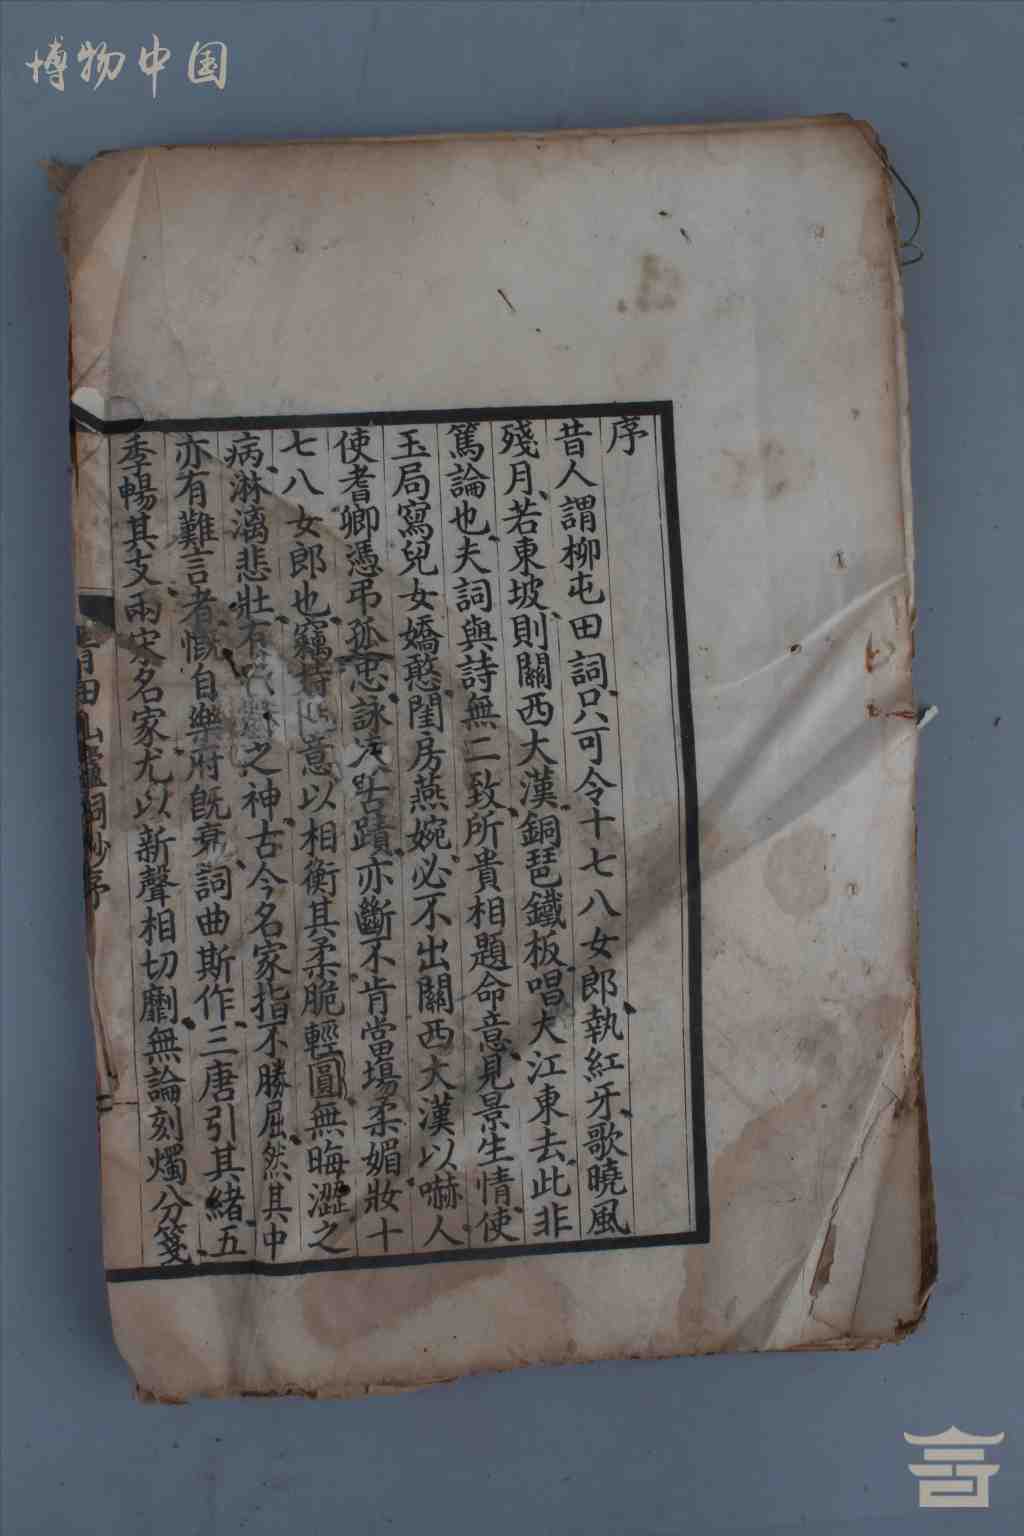 博物中国
序
昔人謂柳屯田詞只可令十七八女郎執紅牙歌曉風
殘月若東坡則關西大漢銅琶鐵板唱大江東去此非
篤論也夫詞與詩無二致所貴相題命意見景生情使
玉局寫兒女嬌憨閨房燕婉必不出關西大漢以嚇人
使耆卿憑弔孤忠詠亦斷不肯當場柔媚妝十
七八女郎也竊持此意以相衡其柔脆輕圓無晦澀之
病淋漓悲壯有之神古今名家指不勝屈然其中
亦有難言者慨自樂府既衰詞曲斯作三唐引其緒五
季暢其支兩宋名家尤以新聲相切劘無論刻燭分箋
田山薑詞抄序